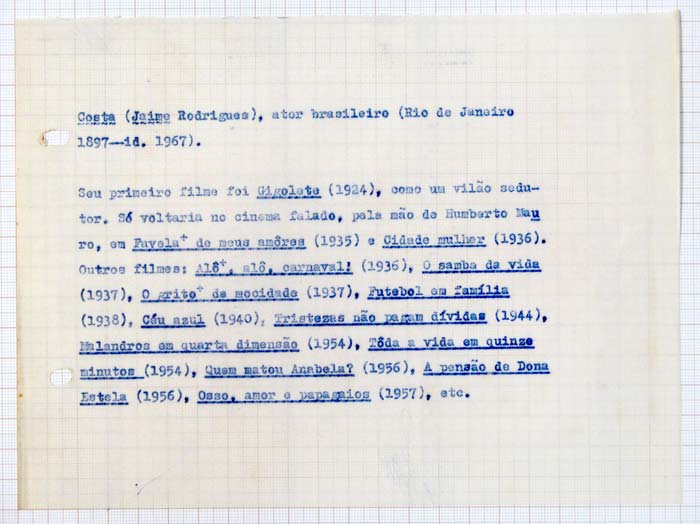 Costa (Jaime Rodrigues), ator brasileiro (Rio de Janeiro
1897--id. 1967).
Seu primeiro filme foi Gigolete (1924), como um vilão sedu-
tor. Só voltaria no cinema falado, pela mão de Humberto Mau
ro, em Favela+ de meus amôres (1935) e Cidade mulher (1936).
Outros filmes: Alô+, alô, carnaval! (1936), O samba da vida
(1937), O grito+ de mocidade (1937), Futebol em família
(1938), Céu azul (1940), Tristezas não pagam dívidas (1944),
Malandros em quarta dimensão (1954), Tôda a vida em quinze
minutos (1954), Quem matou Anabela? (1956), A pensão de Dona
Estela (1956), Osso, amor e papagaios (1957), etc.